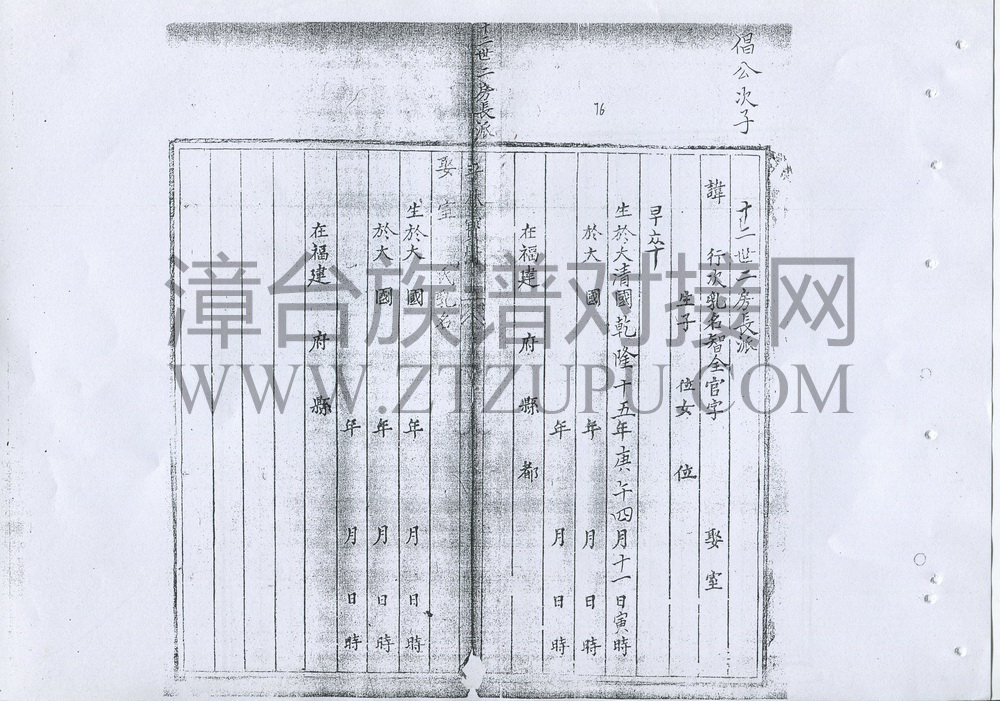 倡公次子
76
十二世二房長派
諱 行次乳名智全官字 娶室
生子 位女 位
早卒
生於大清國乾隆十五年庚午四月十一日寅時
於大 國 年 月 日 時
年 月 日 時
在福建 府 縣 都
十二世二房長派
娶室 氏乳名
生於大 國 年 月 日 時
於大 國 年 月 日 時
年 月 日 時
在福建 府 縣
漳台族谱对接网
WWW.ZTZUPU.COM